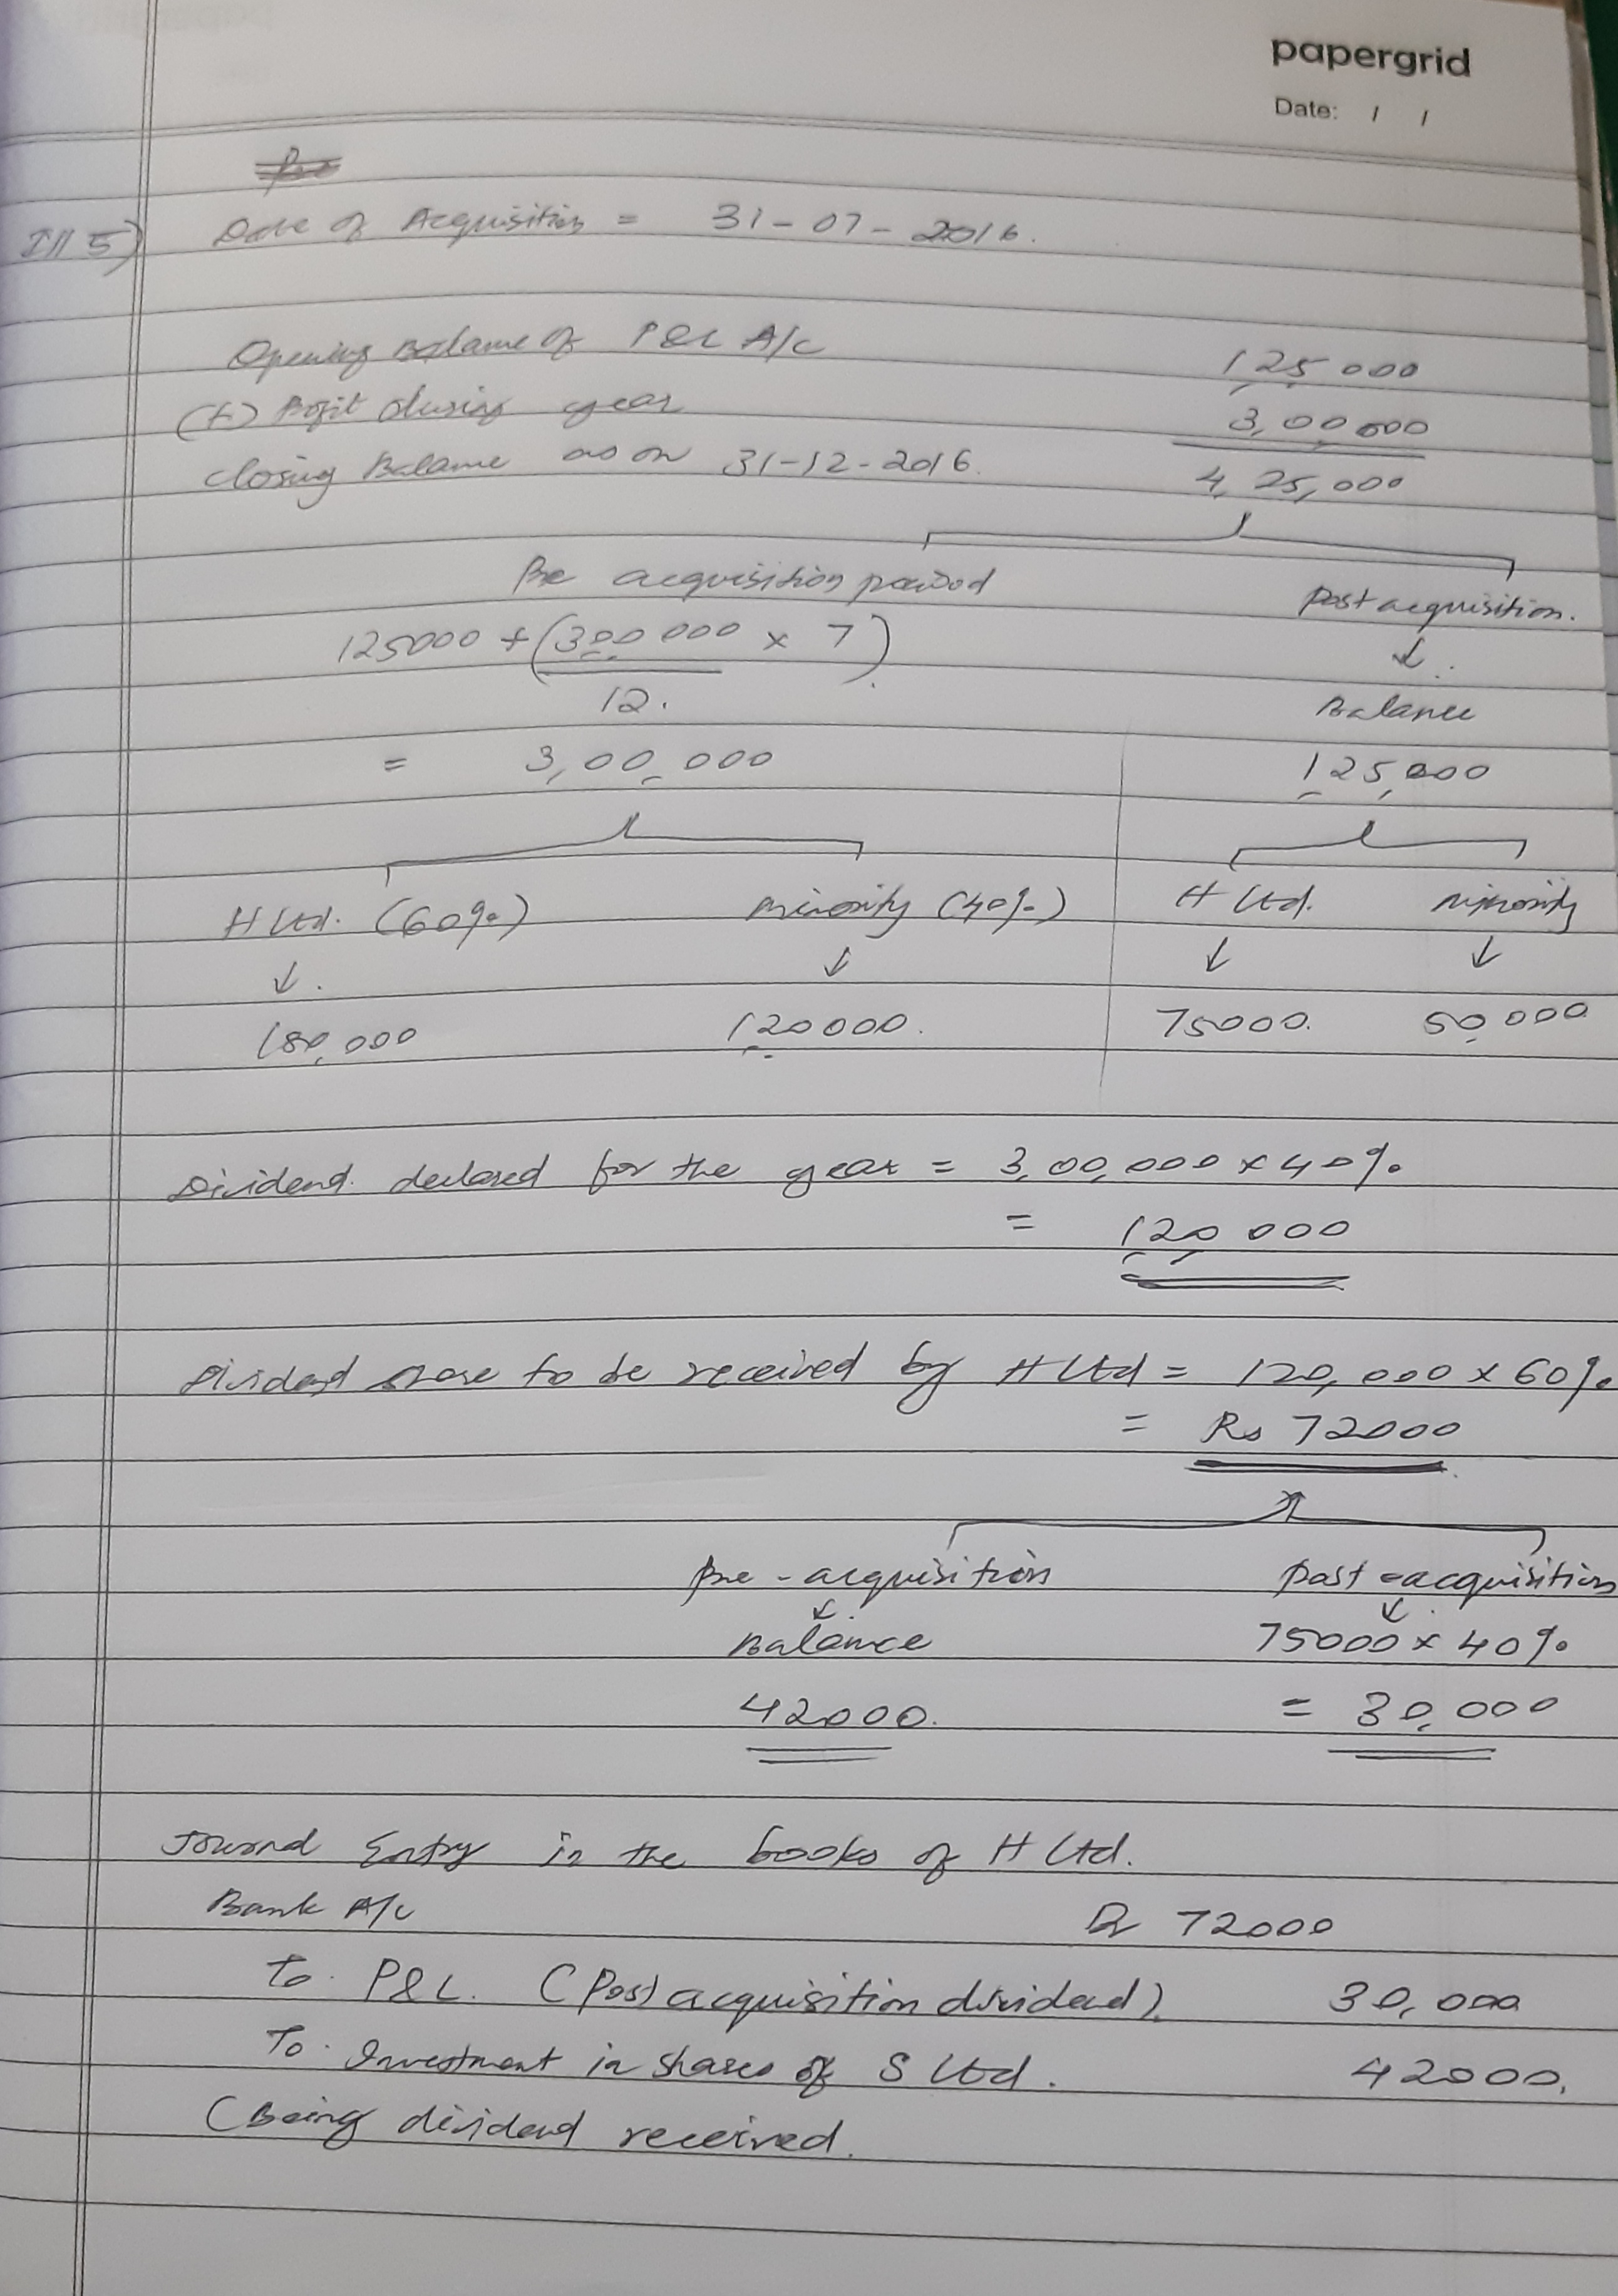 papergrid
Date: / /
Ill 5) Date of Acquisition = 31-07-2016.
Opening Balance of P&L A/c 1,25,000
(+) Profit during year 3,00,000
Closing Balance as on 31-12-2016. 4,25,000
Pre acquisition period Post acquisition.
125000 + (300 000 × 7) ↓
12. Balance
= 3,00,000 125,000
H Ltd. (60%) Minority (40%) H Ltd. Minority
↓ ↓ ↓ ↓
180,000 120000. 75000. 50,000
Dividend declared for the year = 3,00,000 × 40%
= 120 000
Dividend share to be received by H Ltd = 120,000 × 60%
= Rs 72000
Pre-acquisition Post-acquisition
↓ ↓
Balance 75000 × 40%
42000. = 30,000
Journal Entry in the books of H Ltd.
Bank A/c Dr 72000
To P&L. (Post acquisition dividend). 30,000
To Investment in shares of S Ltd. 42000.
(Being dividend received.